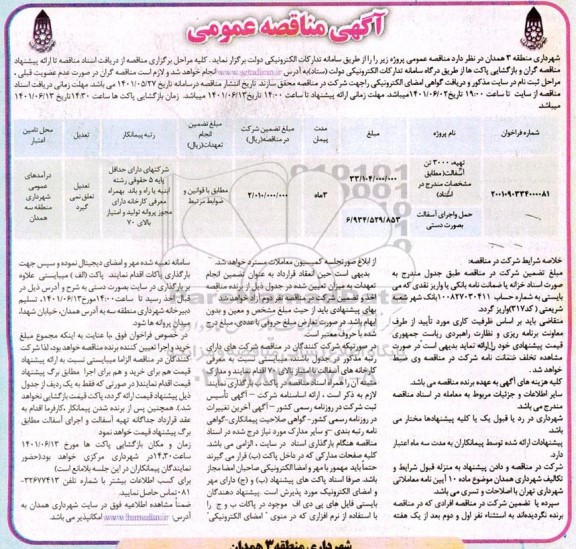 آگهی مناقصه عمومی
شهرداری منطقه ۳ همدان در نظر دارد مناقصه عمومی پروژه زیر را از طریق سامانه تدارکات الکترونیکی دولت برگزار نماید. کلیه مراحل برگزاری مناقصه از دریافت اسناد مناقصه تا ارائه پیشنهاد
مناقصه گران و بازگشایی پاکت ها از طریق درگاه سامانه تدارکات الکترونیکی دولت (ستاد) به آدرس www.setadiran.ir انجام خواهد شد و لازم است مناقصه گران در صورت عدم عضویت قبلی ،
مراحل ثبت نام در سایت مذکور و دریافت گواهی امضای الکترونیکی را جهت شرکت در مناقصه محقق سازند. تاریخ انتشار مناقصه در سامانه تاریخ ۱۴۰۱/۰۵/۲۷ می باشد. مهلت زمانی دریافت اسناد
مناقصه از سایت تا ساعت ۱۹:۰۰ تاریخ ۱۴۰۱/۰۶/۰۲ میباشد. مهلت زمانی ارائه پیشنهاد تا ساعت ۱۴:۰۰ تاریخ ۱۴۰۱/۰۶/۱۳ میباشد. زمان بازگشایی پاکت ها ساعت ۱۴:۳۰ تاریخ ۱۴۰۱/۰۶/۱۳
میباشد.
شماره فراخوان
نام پروژه
مبلغ
مدت پیمان
مبلغ تضمین شرکت در مناقصه(ریال)
مبلغ تضمین انجام تعهدات(ریال)
رتبه پیمانکار
تعدیل
محل تامین اعتبار
۲۰۰۱۰۹۰۳۳۴۰۰۰۰۸۱
تهیه ۳۰۰۰ تن آسفالت( مطابق مشخصات مندرج در اسناد)
۳۳/۱۰۴/۰۰۰/۰۰۰
حمل واجرای آسفالت بصورت دستی
۶/۹۳۴/۵۲۹/۸۵۳
۳ماه
۲/۰۱۰/۰۰۰/۰۰۰
مطابق با قوانین و ضوابط مرتبط
شرکتهای دارای حداقل پایه ۵ حقوقی رشته ابنیه یا راه و باند بهمراه معرفی کارخانه دارای مجوز پروانه تولید و امتیاز بالای ۷۰
تعدیل تعلق نمی گیرد
درآمدهای عمومی شهرداری منطقه سه همدان
خلاصه شرایط شرکت در مناقصه:
مبلغ تضمین شرکت در مناقصه طبق جدول مندرج به
صورت اسناد خزانه یا ضمانت نامه بانکی یا واریز نقدی که می
بایستی به شماره حساب ۱۰۰۸۲۷۰۳۰۴۱۱ بانک شهر شعبه
شریعتی (کد۳۱۷) واریز گردد.
متقاضی باید بر اساس ظرفیت کاری مورد تأیید از طرف
معاونت برنامه ریزی و نظارت راهبردی ریاست جمهوری
قیمت پیشنهادی خود را ارائه نماید بدیهی است در صورت
مشاهده تخلف ضمانت نامه شرکت در مناقصه وی ضبط
خواهد شد.
کلیه هزینه های آگهی به عهده برنده مناقصه می باشد.
سایر اطلاعات و جزئیات مربوط به معامله در اسناد مناقصه
مندرج می باشد
شهرداری در رد یا قبول یک یا کلیه پیشنهادها مختار می
باشد.
پیشنهادات ارائه شده توسط پیمانکاران به مدت سه ماه اعتبار
دارد.
شرکت در مناقصه و دادن پیشنهاد به منزله قبول شرایط و
تکالیف شهرداری همدان موضوع ماده ۱۰ آیین نامه معاملاتی
شهرداری تهران با اصلاحات و تسری می باشد.
سپرده یا تضمین شرکت در مناقصه افرادی که در مناقصه
برنده نگردیده‌اند به استثناء نفر اول و دوم بعد از یک هفته
از ابلاغ صورتجلسه کمیسیون معاملات مسترد خواهد شد.
بدیهی است حین انعقاد قرارداد به عنوان تضمین انجام
تعهدات به میزان تعیین شده در جدول ذیل از برنده مناقصه
اخذ و تضمین شرکت در مناقصه نفر دوم آزاد خواهد شد.
بهای پیشنهادی باید از حیث مبلغ مشخص و معین و بدون
ابهام باشد در صورت تعارض مبلغ حروفی با عددی مبلغ درج
شده با حروف معتبر است.
در صورتیکه شرکت کنندگان در مناقصه شرکت های دارای
رتبه مذکور در جدول باشند میبایست نسبت به معرفی
کارخانه های آسفالت با امتیاز بالای ۷۰ اقدام نمایند و مدارک
مثبته آن را همراه اسناد مناقصه در پاکت ب بارگذاری نمایند
لازم به ذکر است ، ارائه اساسنامه شرکت – آگهی تأسیس
ثبت شرکت در روزنامه رسمی کشور – آگهی آخرین تغییرات
در روزنامه رسمی کشور- گواهی صلاحیت پیمانکاری-گواهی
نامه رتبه بندی -و سایر مدارک مورد نیاز درج شده در اسناد
مناقصه هنگام بارگذاری اسناد در سایت ، الزامی می باشد.
کلیه صفحات مدارکی که در داخل پاکت (ب) قرار می گیرند
حتماً باید مهمور با مهر و امضاء الکترونیکی صاحبان امضا مجاز
باشد. صرفا اسناد پاکت های پیشنهاد (ب) و (ج) دارای مهر
و امضای الکترونیک مورد پذیرش است. پیشنهاد دهندگان
بایستی فایل های پی دی اف موجود در پاکات ب و ج را
با استفاده از نرم افزاری که در منوی "امضای الکترونیکی"
سامانه تعبیه شده مهر و امضای دیجیتال نموده و سپس جهت
بارگذاری پاکات اقدام نمایند. پاکت (الف) میبایستی علاوه
بر بارگذاری در سایت بصورت دستی به شرح و آدرس ذیل در
قبال اخذ رسید تا ساعت ۱۴:۰۰ مورخ ۱۴۰۱/۰۶/۱۳، تسلیم
دبیرخانه شهرداری منطقه سه به آدرس همدان، خیابان شهدا،
میدان پروانه ها شود.
در خصوص فراخوان فوق با عنایت به اینکه مجموع مبلغ
خرید و اجرا تعیین کننده برنده مناقصه خواهد بود، لذا شرکت
کنندگان در مناقصه الزاما میبایستی نسبت به ارائه پیشنهاد
قیمت هم برای خرید و هم برای اجرا مطابق برگ پیشنهاد
قیمت اقدام نمایند( در صورتی که فقط به یک ردیف از جدول
ذیل پیشنهاد قیمت ارائه گردد، پاکت قیمت بازگشایی نخواهد
شد.). همچنین پس از برنده شدن پیمانکار ،کارفرما اقدام به
عقد قرارداد جداگانه تهیه آسفالت و اجرای آسفالت مطابق
برگ پیشنهاد قیمت خواهد نمود
زمان و مکان بازگشایی پاکت ها مورخ ۱۴۰۱/۰۶/۱۳
ساعت۱۴:۳۰ در شهرداری مرکزی خواهد بود(حضور
نمایندگان پیمانکاران در این جلسه بلامانع است)
برای کسب اطلاعات بیشتر با شماره تلفن ۳۲۶۷۷۴۱۳-
۰۸۱ تماس حاصل نمایید.
ضمناً مشاهده اطلاعیه فوق در سایت شهرداری همدان به
آدرس www.hamedan.ir امکانپذیر می باشد.
شهرداری منطقه ۳ همدان